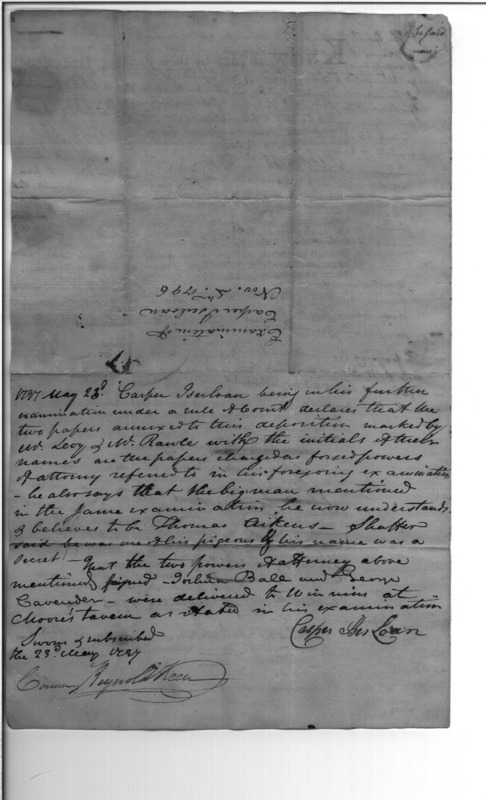 Examination of
Casper Iserloan
Nov. 1796
1797 May 23d Casper Iserloan being in his further
examination under a rule of Court declares that the
two papers annexed to this deposition marked by
Mr Levy & Mr Rawle with the initials of their
names are the papers charged as forced powers
of attorney refered to in his foregoing examination
- he also says that the big man mentioned
in the same examination he now understands
& believes to be Thomas Aikens - Shaffer
said he was one of his pigeons & his name was a
secret - That the two powers of attorney above
mentioned signed - Joshua Ball and George
Cavender - were delivered to Winnins at
Moore's tavern as stated in his examination
Sworn & subscribed
the 23d May 1797
Casper Iser Loan
Reynold Keen